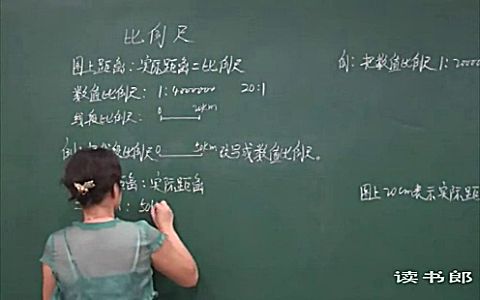 比例尺
图上距离：实际距离＝比例尺
数值比例尺：1：4000000 20:1
线段比例尺：0 20km
例：线段比例尺0 50km改写成数值比例尺。
距离：实际距离
: 50
例：把数值比例尺1：20000
图上20cm表示实际距
读书郎